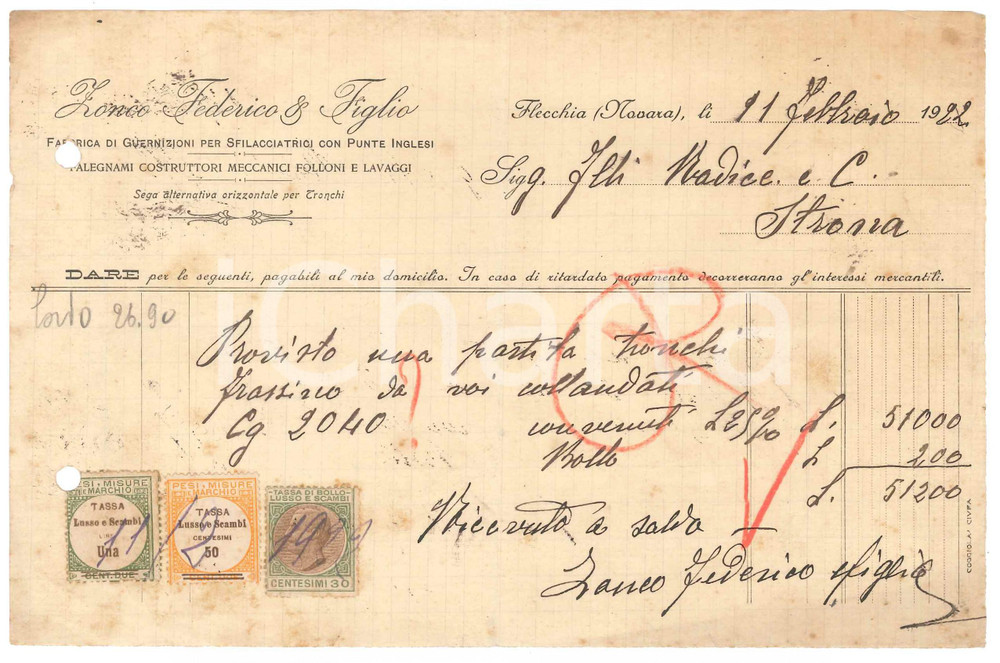 Zonco Federico & Figlio
Fabbrica di Guernizioni per Sfilacciatrici con Punte Inglesi
Falegnami Costruttori Meccanici Folloni e Lavaggi
Sega alternativa orizzontale per Tronchi
Flecchia (Novara), li 11 Febbraio 1922
Sigg. Flli Radice e C.
Strona
DARE per le seguenti, pagabili al mio domicilio. In caso di ritardato pagamento decorreranno gl'interessi mercantili.
Porto 26.90
Provisto una partita tronchi
frassino da voi collaudati
Cg 2040 convenuti L 25 % L. 51000
Bollo L 200
L. 51200
Ricevuto a saldo
Zonco Federico e figlio
PESI - MISURE E MARCHIO
TASSA
Lusso e Scambi
Una
CENT. DUE
PESI - MISURE E MARCHIO
TASSA
Lusso e Scambi
CENTESIMI
50
TASSA DI BOLLO
LUSSO E SCAMBI
CENTESIMI 30
11/2 1922
iCharta